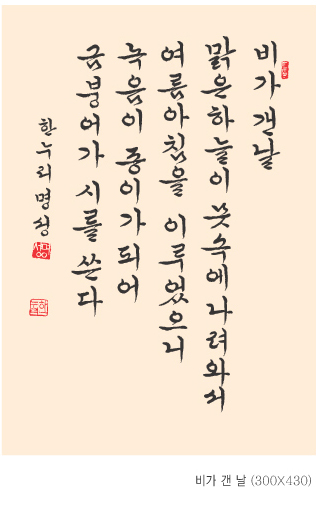 비가 갠 날
맑은 하늘이 못 속에 나려와서
여름아침을 이루었으니
녹음이 종이가 되어
금붕어가 시를 쓴다
한누리명상
비가 갠 날 (300X430)